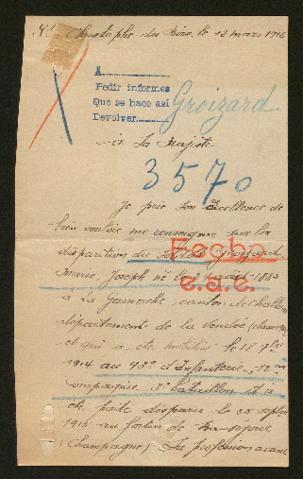 Christophe du Bois, le 12 mars 1916
A
Pedir informes
Que se hace así
Devolver
Groizard
Sa Majesté
3570
Je prie Son Excellence de
bien vouloir me renseigner sur la
disparition du Soldat Groizard
Fecho
Marie, Joseph né le 1883
e.a.e.
à la Garnache canton de Challans
département de la Vendée
et qui a été mobilisé le 18
1914 au 93e d'Infanterie, 12me
compagnie 3e bataillon et a
été porté disparu le 25 septembre
1915 au fortin de Beauséjour
(Champagne) Sa profession avant